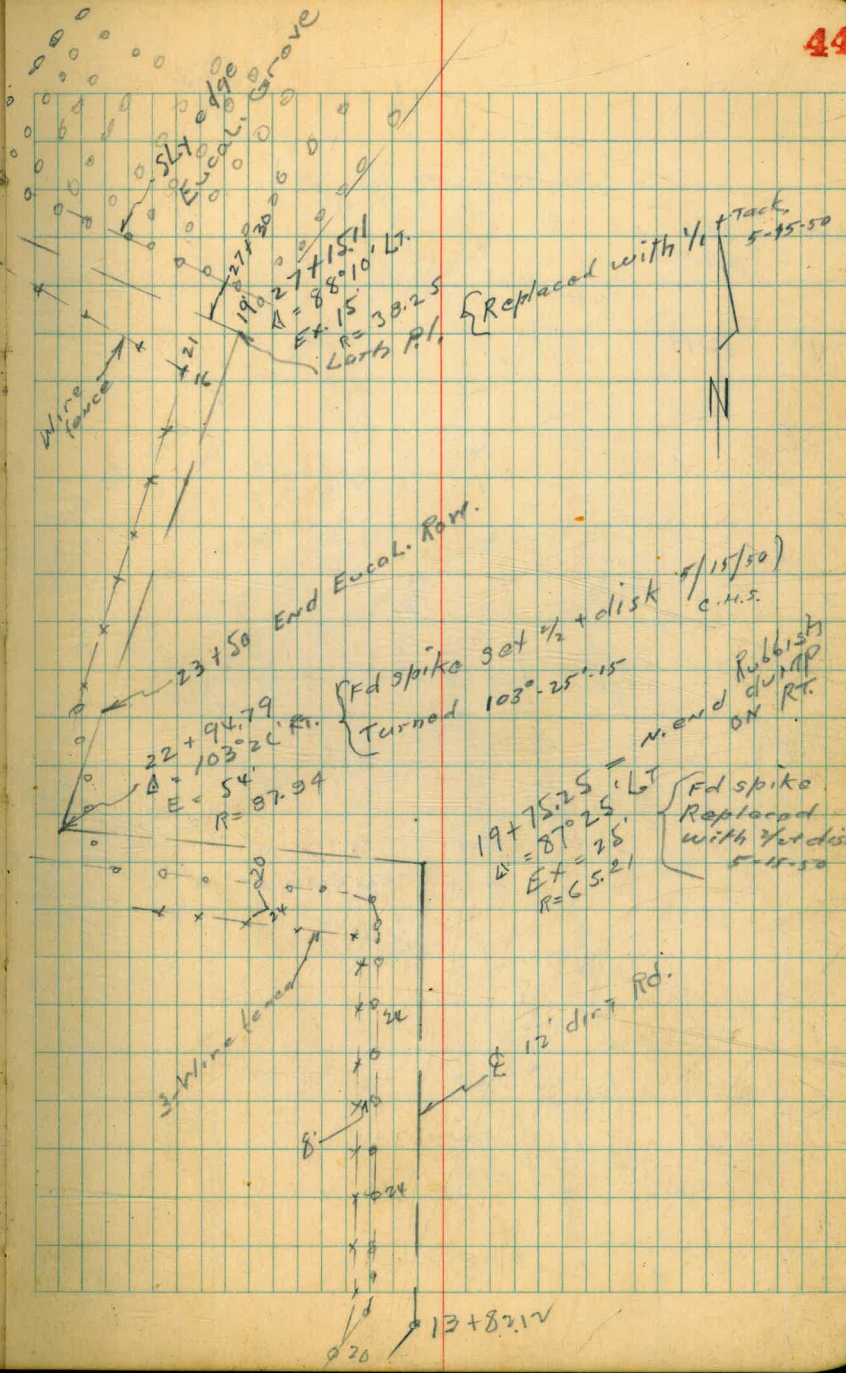 44
Sly edge
Eucal. Grove
27+30
19
27+15.11
Δ = 88°10' LT.
Ex. 15'
R = 38.25
Lath P.I.
{Replaced with
Tack
N
21
16
Wire
fence
23+50 End Eucal. Row.
22+94.79
E = 54'
R = 87.94
{Fd spike set 2/2 + disk 5/15/50)
C.H.S.
Turned 103°-25'-15
19+75.25 = N. end dump
Rubbish
ON RT.
Δ = 87°25' LT
Ex = 25'
R = 65.21
{Fd spike
Replaced
with 2/2+dis
5-15-50
20
24
3-Wire fence
24
℄ 12' dirt Rd.
8'
24
13+82.12
20